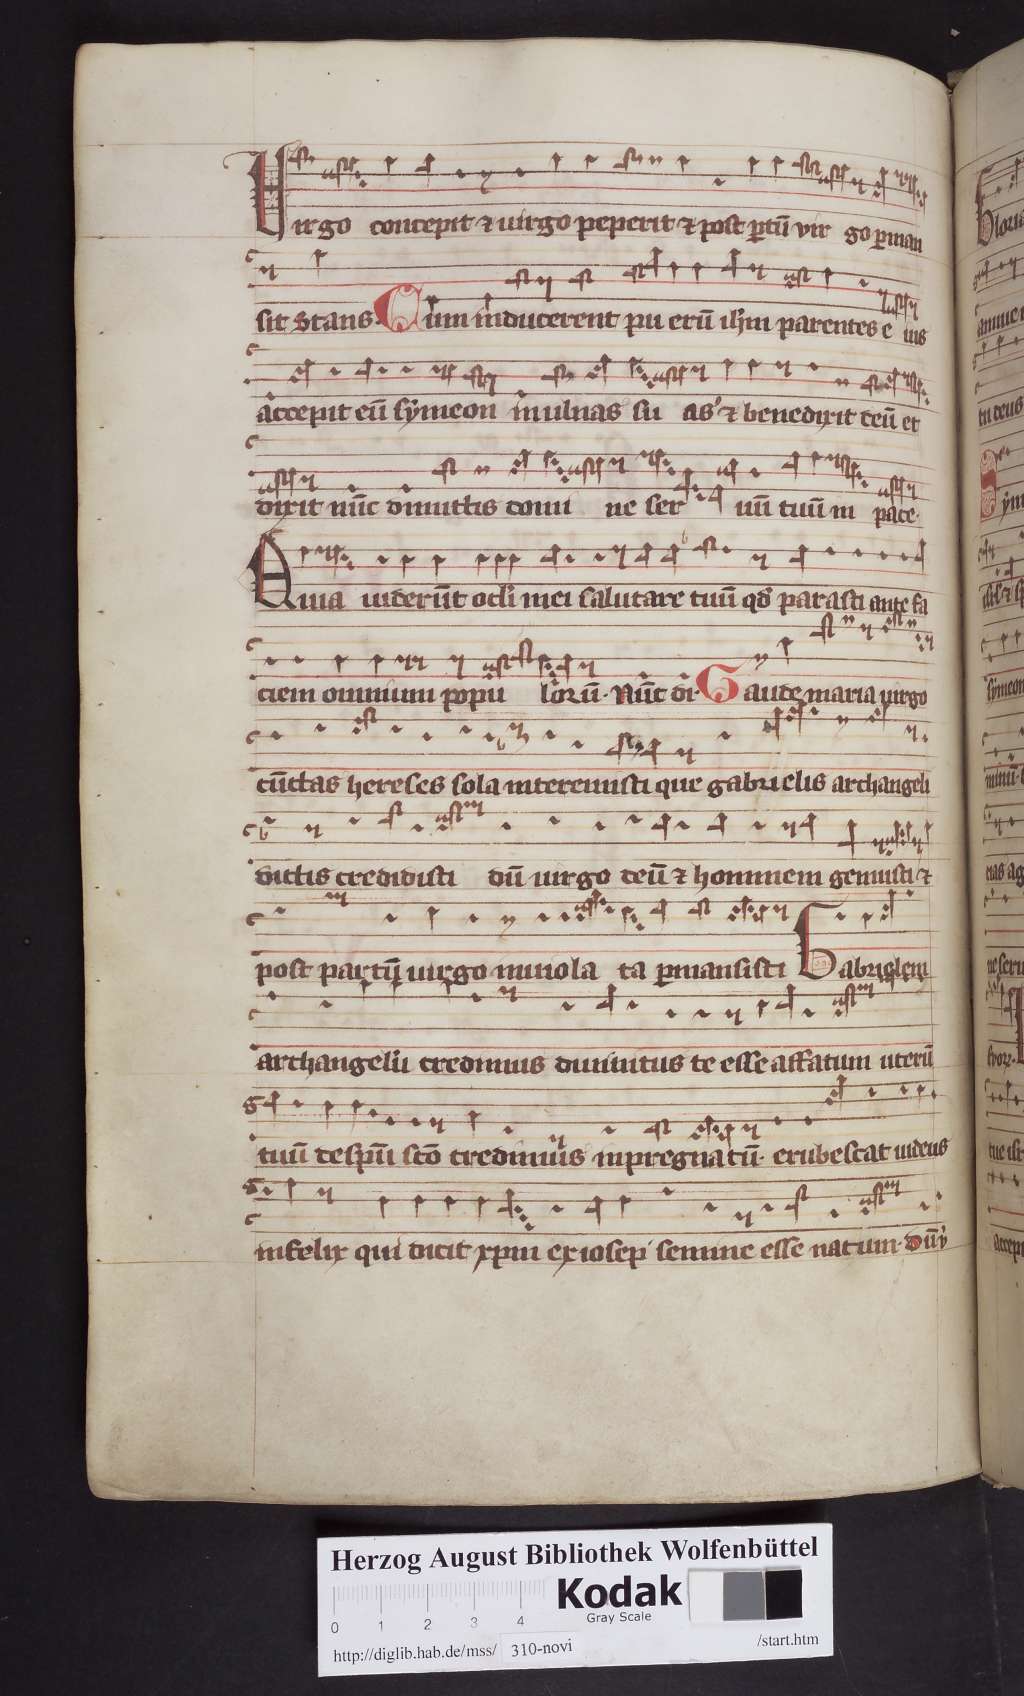 Virgo concepit ⁊ uirgo peperit ⁊ post ꝑtū vir go ꝑman
sit Stans. Cum inducerent pu erū ihm parentes e ius
accepit eū symeon in ulnas su as ⁊ benedixit deū et
dixit nūc dimittis domi ne ser uū tuū in pace.
Quia uiderūt ocli mei salutare tuū qd parasti ante fa
ciem omnium popu lorū. Nūc di. Gaude maria uirgo
cūctas hereses sola interemisti que gabrielis archangeli
dictis credidisti dū uirgo deū ⁊ hominem genuisti ⁊
post partū uirgo inuiola ta ꝑmansisti Gabrielem
archangelū credimus diuinitus te esse affatum uterū
tuū de spū scō credimus inpregnatū. erubescat iudeus
infelix qui dicit xpm ex ioseph semine esse natum. Dū ỹ
Herzog August Bibliothek Wolfenbüttel
Kodak
Gray Scale
0 1 2 3 4
http://diglib.hab.de/mss/ 310-novi /start.htm